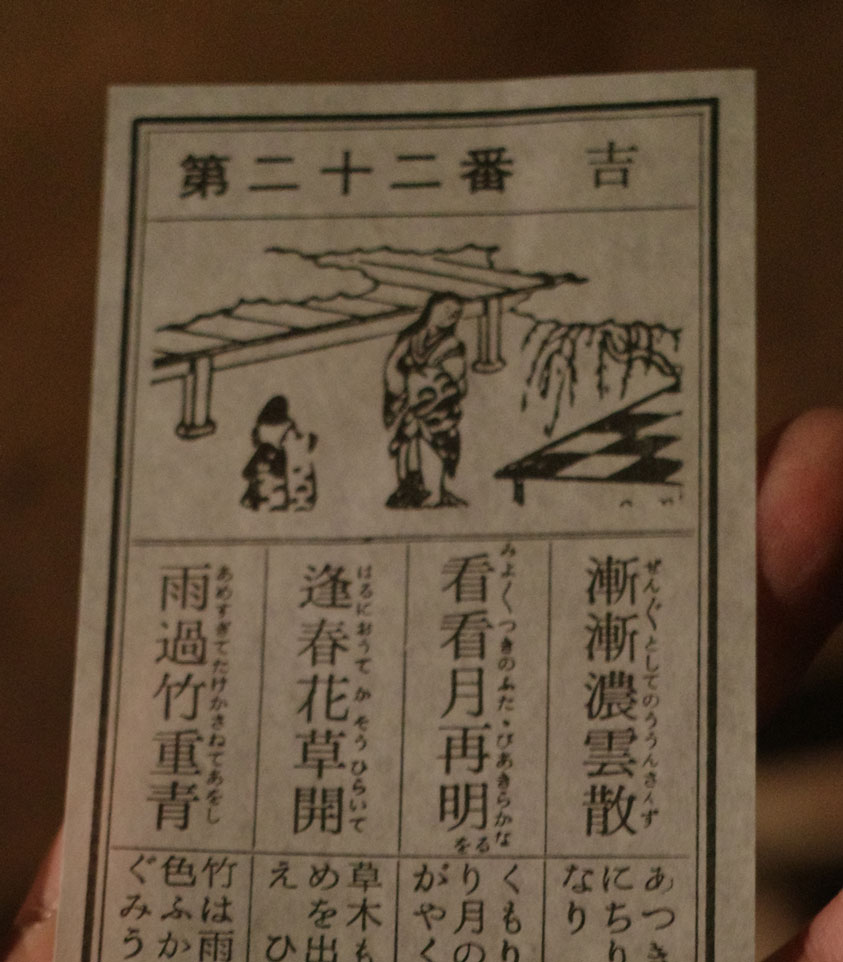 第二十二番 吉
漸漸濃雲散
ぜん〲としてのううんさんず
看看月再明
みよ〱つきのふたゝびあきらかなるを
逢春花草開
はるにおうて かそう ひらいて
雨過竹重青
あめすぎてたけかさねてあをし
あつき
にちり
なり
くもり
り月の
がやく
草木も
めを出
え ひ
竹は雨
色ふか
ぐみう